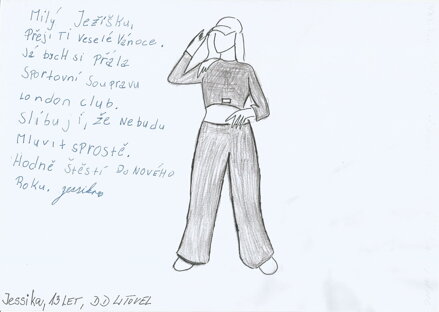 Milý Ježíšku,
Přeji Ti veselé Vánoce.
Já bych si přála
Sportovní soupravu
London club.
Slibuji, že nebudu
Mluvit sprostě.
Hodně štěstí do NOVÉHO
Roku. Jessika
Jessika, 13 LET, DD LITOVEL